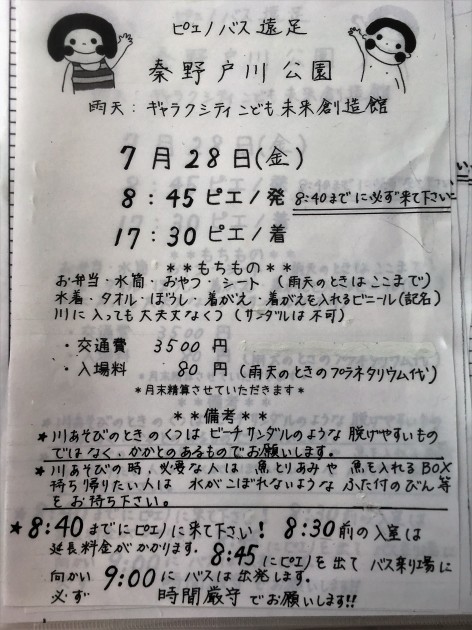 ピエノバス遠足
秦野戸川公園
雨天:ギャラクシティこども未来創造館
7月28日(金)
8:45ピエノ発 8:40までに必ず来て下さい
17:30ピエノ着
**もちもの**
お弁当・水筒・おやつ・シート (雨天のときはここまで)
水着・タオル・ぼうし・着がえ・着がえを入れるビニール(記名)
川に入っても大丈夫なくつ (サンダルは不可)
・交通費 3500円
・入場料 80円 (雨天のときのプラネタリウム代)
*月末精算させていただきます*
**備考**
★川あそびのときのくつはビーチサンダルのような脱げやすいもの
ではなく、かかとのあるものでお願いします。
★川あそびの時、必要な人は魚とりあみや魚を入れるBOX
持ち帰りたい人は水がこぼれないようなふた付のびん等
をお持ち下さい。
★8:40までにピエノに来て下さい! 8:30前の入室は
延長料金がかかります。8:45にピエノを出てバス乗り場に
向かい 9:00にバスは出発します。
必ず 時間厳守でお願いします!!